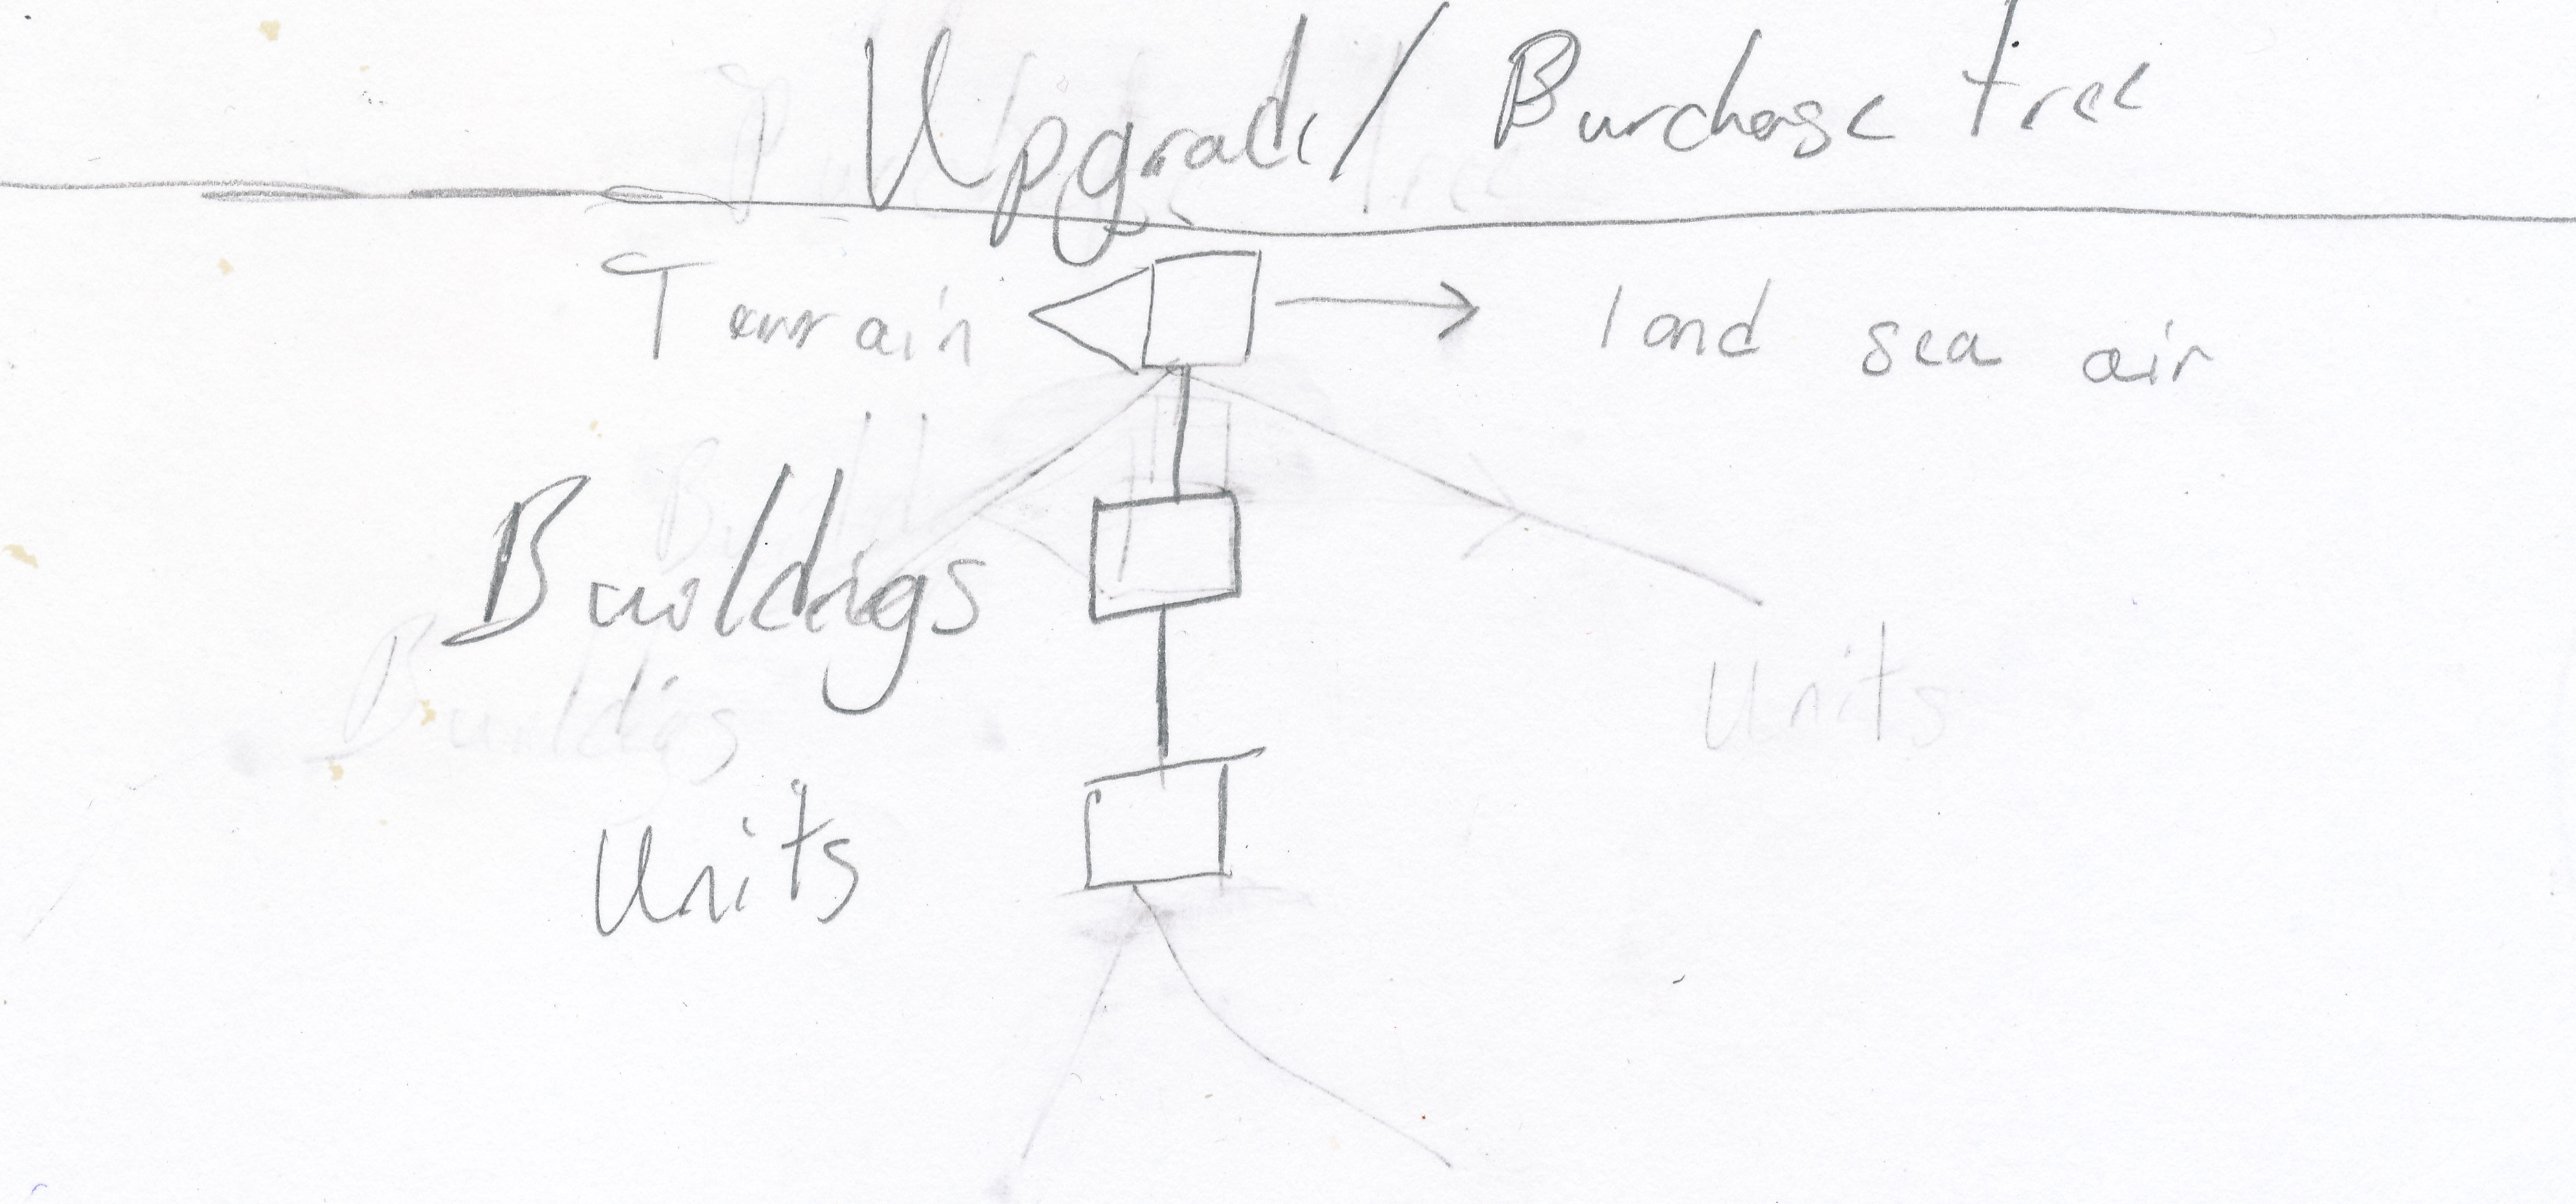 Upgrade/ Burchase tree
Terrain land sea air
Buildigs
Units
Units
Buildigs